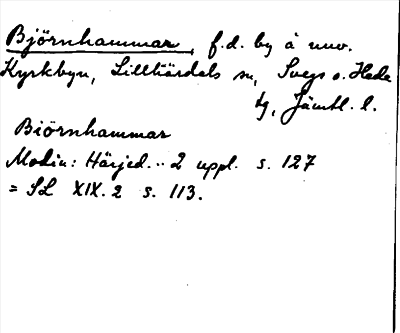 Björnhammar, f.d. by å nuv.
Kyrkbyn, Lillhärdals sn, Svegs o. Hede
tg, Jämtl. l.
Biörnhammar
Modin: Härjed... 2 uppl. s. 127
= SL XIX. 2 s. 113.